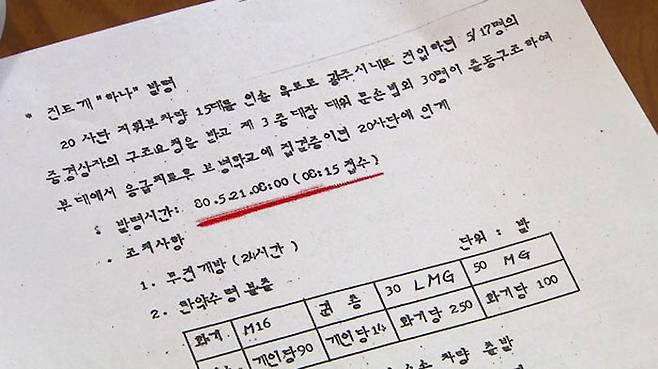 * 진도개 "하나" 발령
20 사단 지휘부차량 15대를 인솔 육로로 광주시내로 진입하던 5/17명의
중경상자의 구조요청을 받고 제 3 중대장 대위 문손범외 30명이 출동구조하여
부대에서 응급치료후 보병학교에 집결중이던 20사단에 인계
: 발령시간: 80.5.21.08:00 (08:15 접수)
· 조치사항
1. 무전개방 (24시간)
2. 탄약수령 불출
단위 : 발
화기 M16 권총 30 LMG 50 MG
개인당90 개인당14 화기당 250 화기당 100
차량 출발